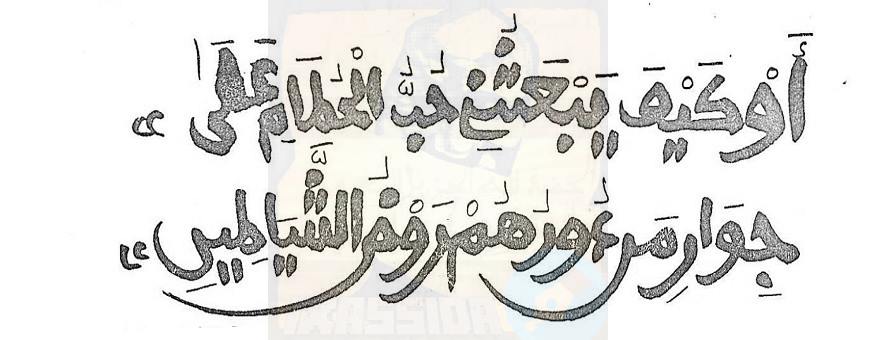 أَوْ كَيْفَ يَبْعَثُنِي حُبُّ الْحُطَامِ عَلَى
جِوَارِ مَنْ دُورُهُمْ رَوْضُ الشَّيَاطِينِ